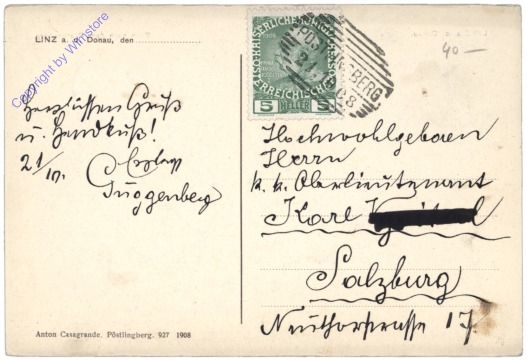 LINZ a. d. Donau, den
Copyright by Winstore
40 —
KAISERLICHE KÖNIGLICHE
ÖSTERREICHISCHE POST
5 HELLER 5
PÖSTLINGBERG
21
08
Herzlichsten Gruß
u. Handkuß!
21/IV.
Guggenberg
Hochwohlgeboren
Herrn
k. k. Oberlieutenant
Karl
Salzburg
Neuthorstrasse 17.
Anton Casagrande, Pöstlingberg. 927 1908